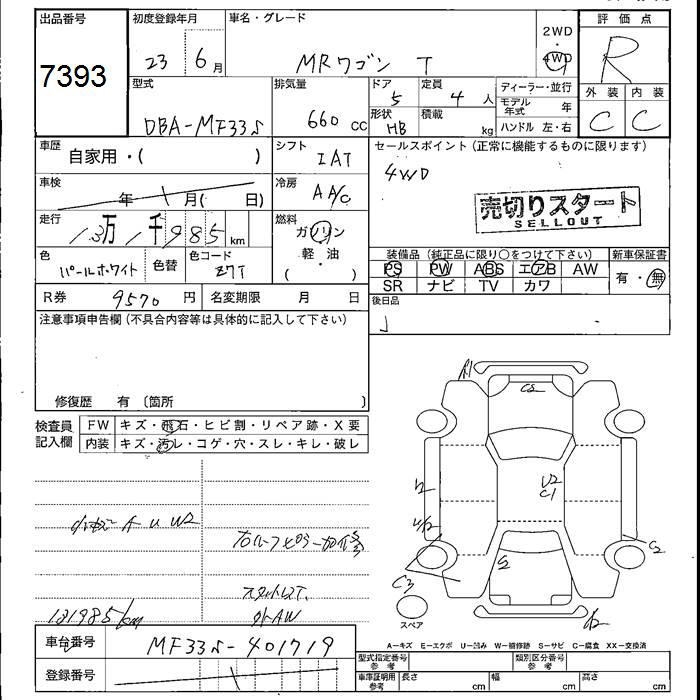 出品番号
7393
初度登録年月
23 6月
車名・グレード
MRワゴン T
2WD
4WD
評価点
R
外装 内装
C C
型式
DBA-MF33S
排気量
660 cc
ドア
5
形状
HB
定員
4 人
積載
kg
ディーラー・並行
モデル年式 年
ハンドル 左・右
車歴
自家用・( )
シフト
IAT
セールスポイント(正常に機能するものに限ります)
4WD
売切りスタート
SELLOUT
車検
年 月( 日)
冷房
AA/C
走行
13万1千985km
燃料
ガソリン
軽・油
( )
色
パールホワイト
色替
色コード
Z7T
装備品(純正品に限り○をつけて下さい)
PS PW ABS エアB AW
SR ナビ TV カワ
新車保証書
有・無
R券 9570円
名変期限 月 日
後日品
注意事項申告欄(不具合内容等は具体的に記入して下さい)
修復歴 有〔箇所 〕
検査員記入欄
FW キズ・飛石・ヒビ割・リペア跡・X要
内装 キズ・汚レ・コゲ・穴・スレ・キレ・破レ
A1
C2
U2
C1
C2
C3
S
スペア
U W2
131985km
外AW
A−キズ E−エクボ U−凹み W−補修跡 S−サビ C−腐食 XX−交換済
車台番号 MF33S-401719
登録番号
型式指定番号 参考
類別区分番号 参考
車庫証明用 参考
長さ cm
幅 cm
高さ cm